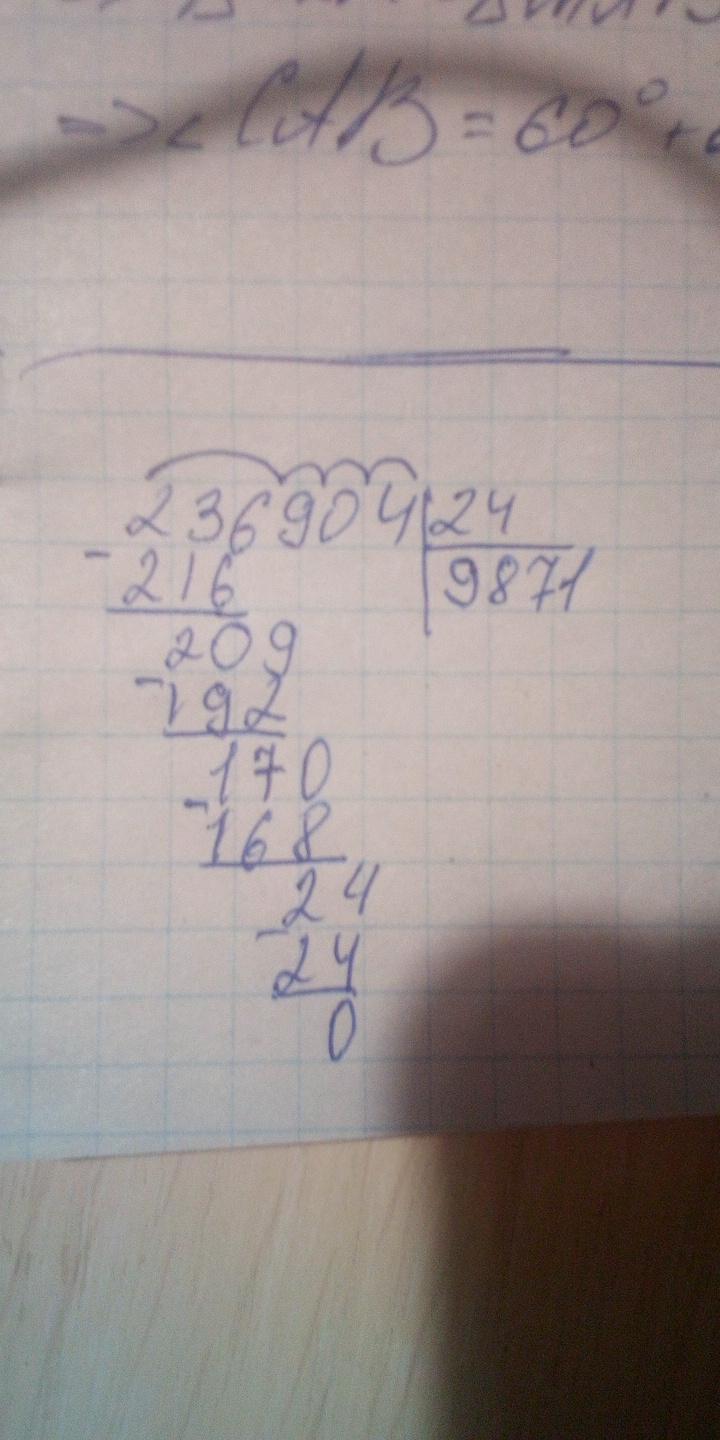 => < CAB = 60° +
236904 | 24
- 216 | 9871
209
- 192
170
- 168
24
- 24
0